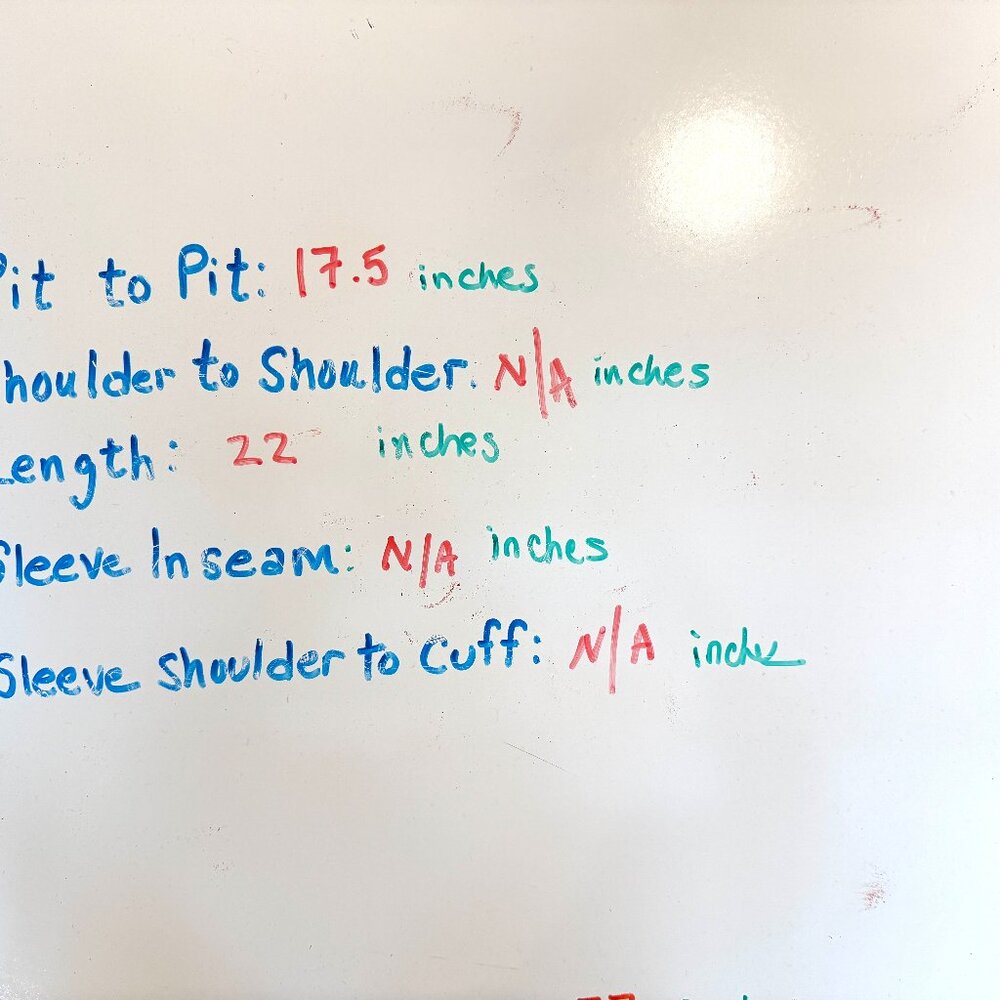 Pit to Pit: 17.5 inches
Shoulder to Shoulder: N/A inches
Length: 22 inches
Sleeve Inseam: N/A inches
Sleeve Shoulder to Cuff: N/A inches